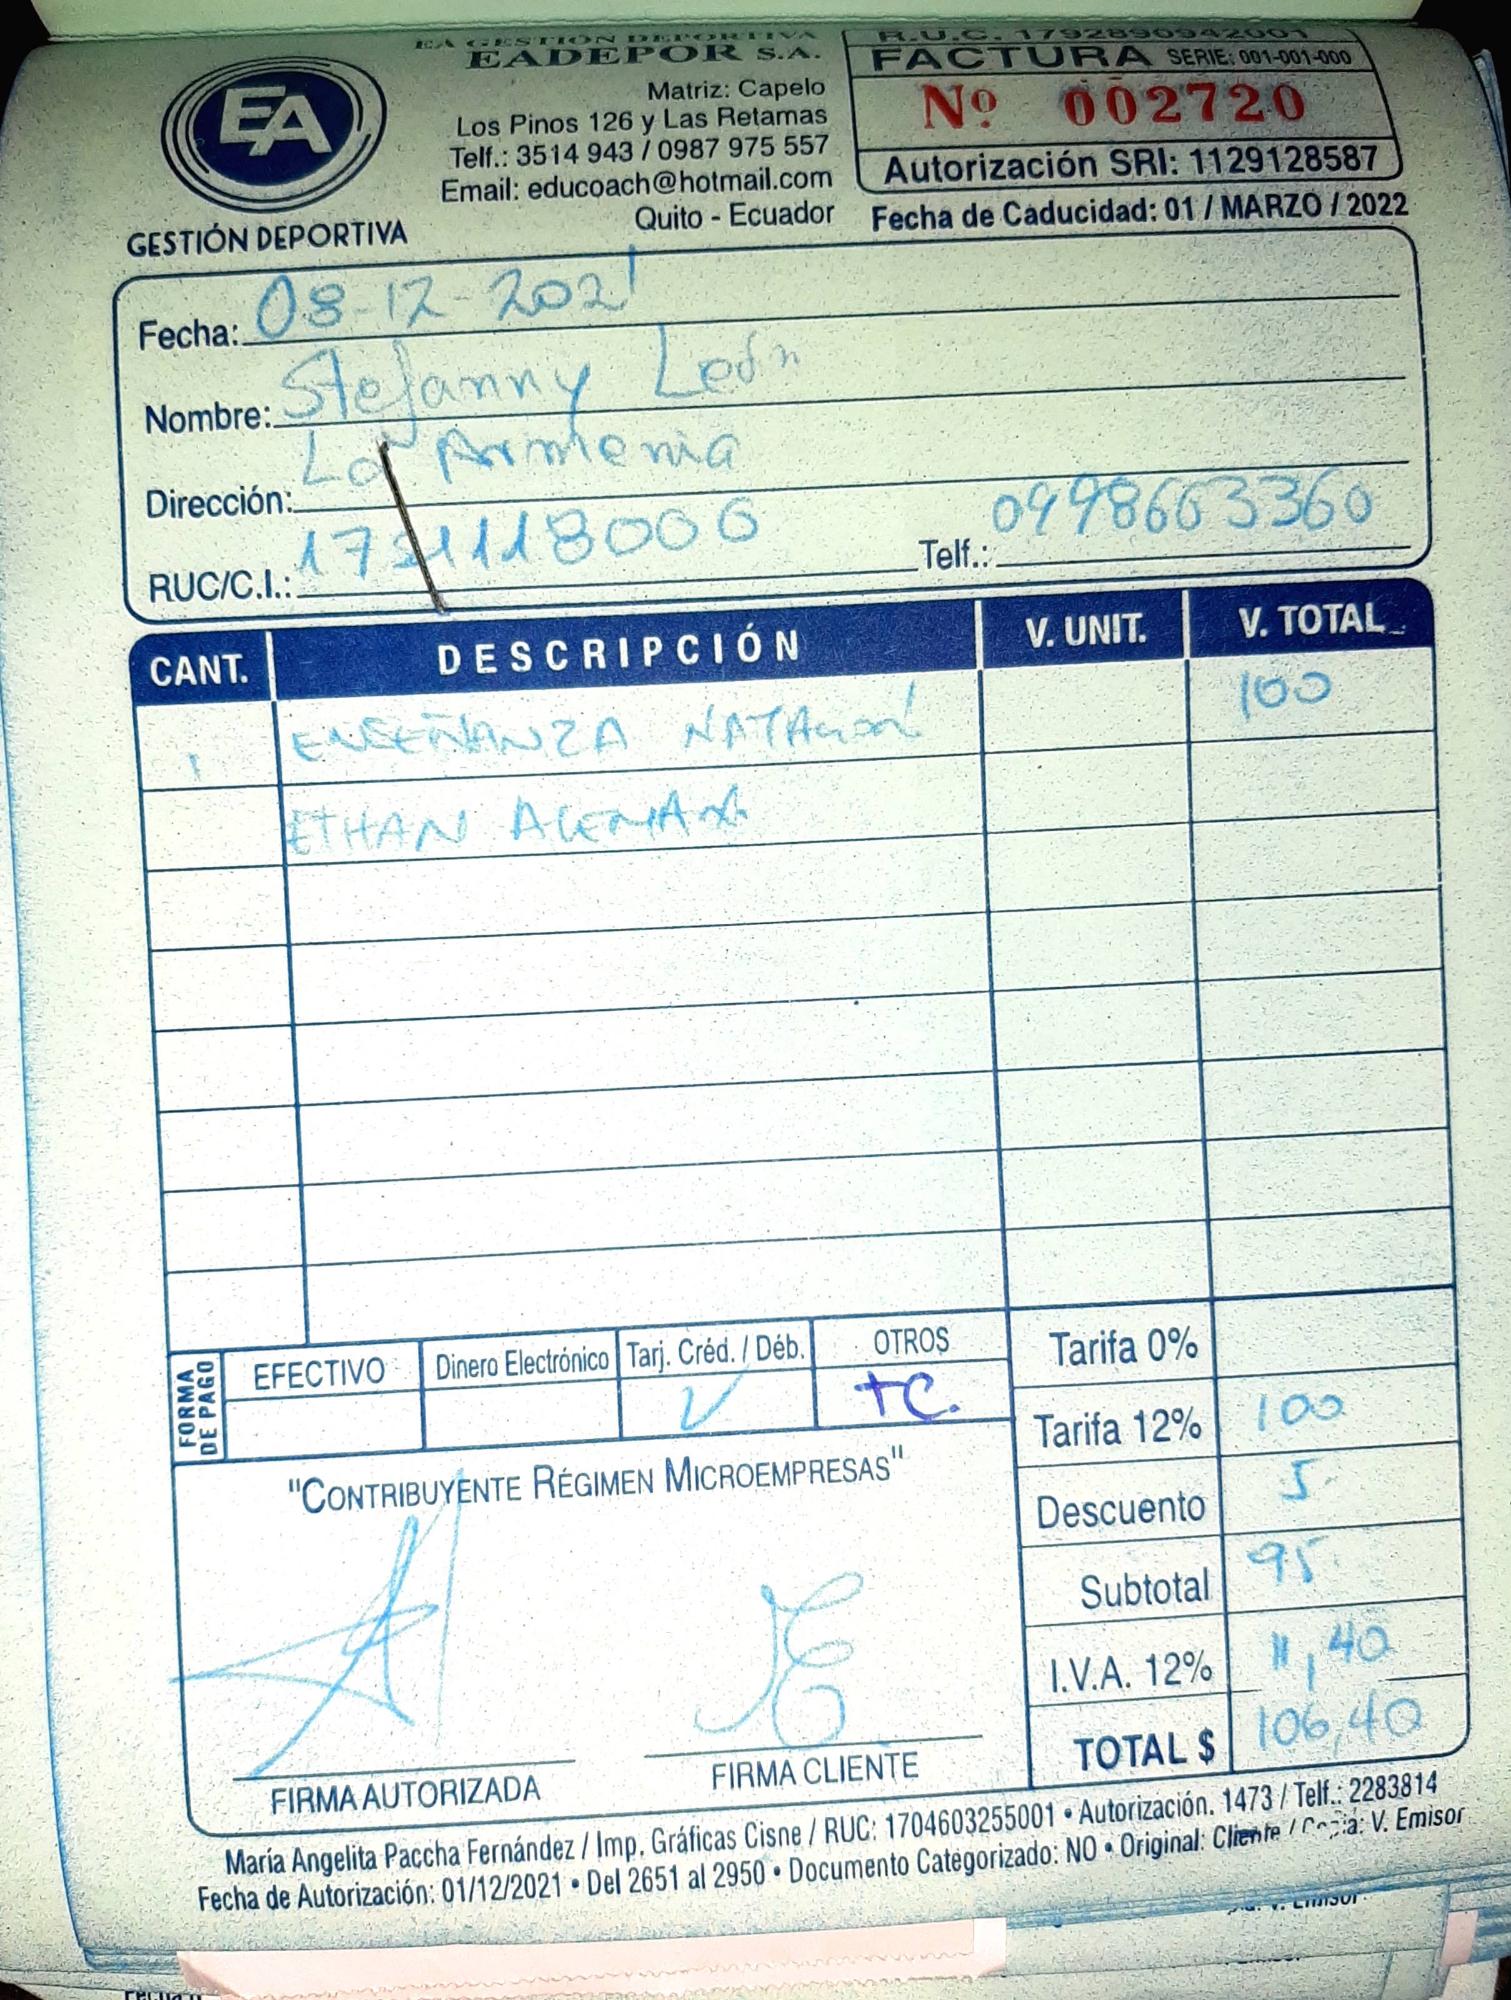 EA
GESTIÓN DEPORTIVA
EA GESTION DEPORTIVA
EADEPOR S.A.
Matriz: Capelo
Los Pinos 126 y Las Retamas
Telf.: 3514 943 / 0987 975 557
Email: educoach@hotmail.com
Quito - Ecuador
R.U.C. 1792890942001
FACTURA SERIE: 001-001-000
Nº 002720
Autorización SRI: 1129128587
Fecha de Caducidad: 01 / MARZO / 2022
Fecha: 08-12-2021
Nombre: Stefanny León
Dirección: La Armenia
RUC/C.I.: Telf.: 0998663360
CANT. DESCRIPCIÓN V. UNIT. V. TOTAL
1 ENSEÑANZA NATACIÓN 100
ETHAN
FORMA DE PAGO
EFECTIVO Dinero Electrónico Tarj. Créd. / Déb. OTROS
TC.
"CONTRIBUYENTE RÉGIMEN MICROEMPRESAS"
Tarifa 0%
Tarifa 12% 100
Descuento 5
Subtotal 95
I.V.A. 12% 11,40
TOTAL $ 106,40
FIRMA AUTORIZADA FIRMA CLIENTE
María Angelita Paccha Fernández / Imp. Gráficas Cisne / RUC: 1704603255001 • Autorización. 1473 / Telf.: 2283814
Fecha de Autorización: 01/12/2021 • Del 2651 al 2950 • Documento Categorizado: NO • Original: Cliente / Copia: V. Emisor